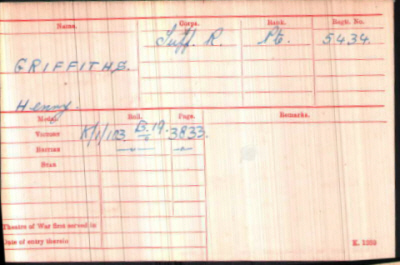 Name. Corps. Rank. Regtl. No.
GRIFFITHS. Suff. R. Pte. 5434.
Henry.
Medal. Roll. Page. Remarks.
Victory K/1/103 B.19. 3833.
British —„— —„—
Star
Theatre of War first served in
Date of entry therein
K. 1380